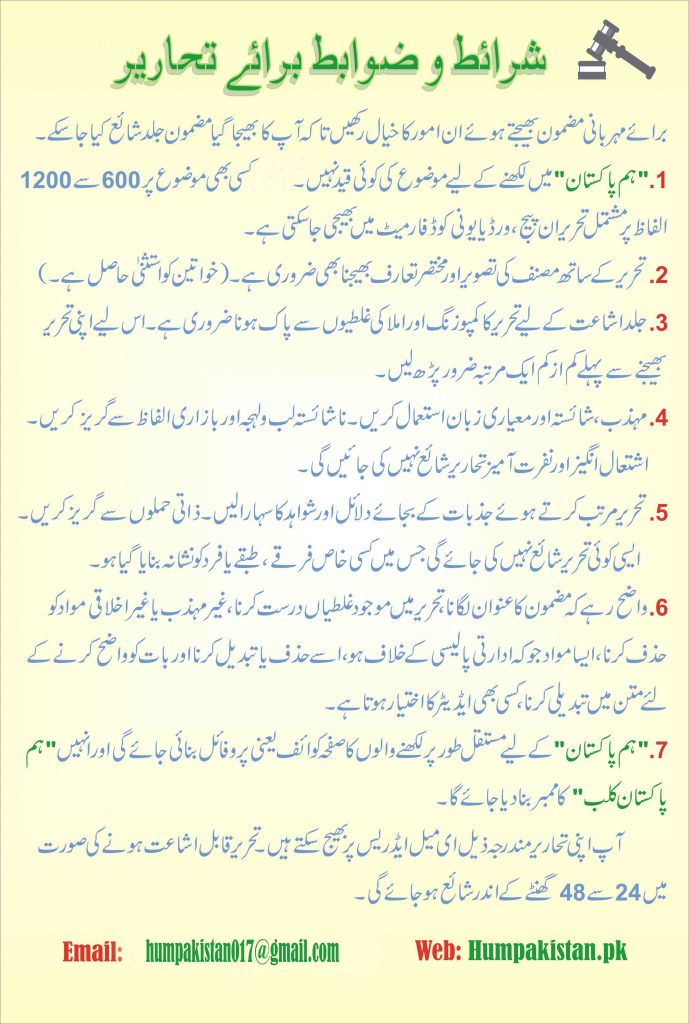 شرائط و ضوابط برائے تحاریر
برائے مہربانی مضمون بھیجتے ہوئے ان امور کا خیال رکھیں تاکہ آپ کا بھیجا گیا مضمون جلد شائع کیا جا سکے۔
1. "ہم پاکستان" میں لکھنے کے لیے موضوع کی کوئی قید نہیں۔ کسی بھی موضوع پر 600 سے 1200
الفاظ پر مشتمل تحریر ان پیج، ورڈ یا یونی کوڈ فارمیٹ میں بھیجی جا سکتی ہے۔
2. تحریر کے ساتھ مصنف کی تصویر اور مختصر تعارف بھیجنا بھی ضروری ہے۔ (خواتین کو استثنیٰ حاصل ہے۔)
3. جلد اشاعت کے لیے تحریر کا کمپوزنگ اور املا کی غلطیوں سے پاک ہونا ضروری ہے۔ اس لیے اپنی تحریر
بھیجنے سے پہلے کم از کم ایک مرتبہ ضرور پڑھ لیں۔
4. مہذب، شائستہ اور معیاری زبان استعمال کریں۔ ناشائستہ لب و لہجہ اور بازاری الفاظ سے گریز کریں۔
اشتعال انگیز اور نفرت آمیز تحاریر شائع نہیں کی جائیں گی۔
5. تحریر مرتب کرتے ہوئے جذبات کے بجائے دلائل اور شواہد کا سہارا لیں۔ ذاتی حملوں سے گریز کریں۔
ایسی کوئی تحریر شائع نہیں کی جائے گی جس میں کسی خاص فرقے، طبقے یا فرد کو نشانہ بنایا گیا ہو۔
6. واضح رہے کہ مضمون کا عنوان لگانا، تحریر میں موجود غلطیاں درست کرنا، غیر مہذب یا غیر اخلاقی مواد کو
حذف کرنا، ایسا مواد جو کہ ادارتی پالیسی کے خلاف ہو، اسے حذف یا تبدیل کرنا اور بات کو واضح کرنے کے
لئے متن میں تبدیلی کرنا، کسی بھی ایڈیٹر کا اختیار ہوتا ہے۔
7. "ہم پاکستان" کے لیے مستقل طور پر لکھنے والوں کا صفحہ کوائف یعنی پروفائل بنائی جائے گی اور انہیں "ہم
پاکستان کلب" کا ممبر بنا دیا جائے گا۔
آپ اپنی تحاریر مندرجہ ذیل ای میل ایڈریس پر بھیج سکتے ہیں۔ تحریر قابل اشاعت ہونے کی صورت
میں 24 سے 48 گھنٹے کے اندر شائع ہو جائے گی۔
Email: humpakistan017@gmail.com Web: Humpakistan.pk